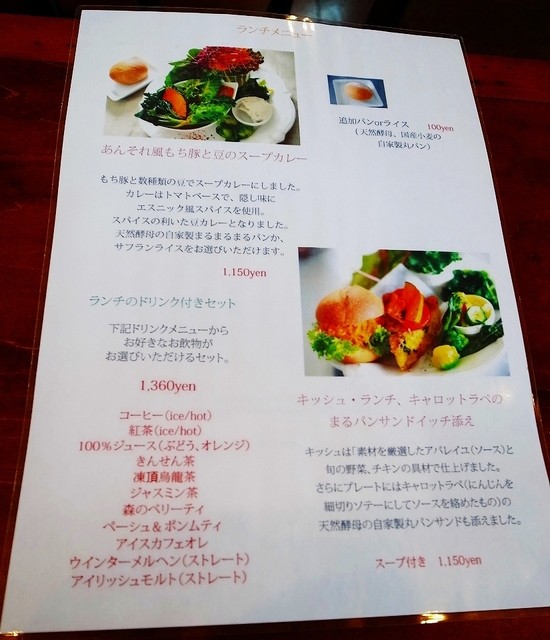 ランチメニュー
あんそれ風もち豚と豆のスープカレー
もち豚と数種類の豆でスープカレーにしました。
カレーはトマトベースで、隠し味に
エスニック風スパイスを使用。
スパイスの利いた豆カレーとなりました。
天然酵母の自家製まるまるまるパンか、
サフランライスをお選びいただけます。
1,150yen
ランチのドリンク付きセット
下記ドリンクメニューから
お好きなお飲物が
お選びいただけるセット。
1,360yen
コーヒー(ice/hot)
紅茶(ice/hot)
100%ジュース(ぶどう、オレンジ)
きんせん茶
凍頂烏龍茶
ジャスミン茶
森のベリーティ
ペーシュ&ボンムティ
アイスカフェオレ
ウインターメルヘン(ストレート)
アイリッシュモルト(ストレート)
追加パンorライス 100yen
(天然酵母、国産小麦の
自家製丸パン)
キッシュ・ランチ、キャロットラペの
まるパンサンドイッチ添え
キッシュは「素材を厳選したアパレイユ(ソース)と
旬の野菜、チキンの具材で仕上げました。
さらにプレートにはキャロットラペ(にんじんを
細切りソテーにしてソースを絡めたもの)の
天然酵母の自家製丸パンサンドも添えました。
スープ付き 1,150yen